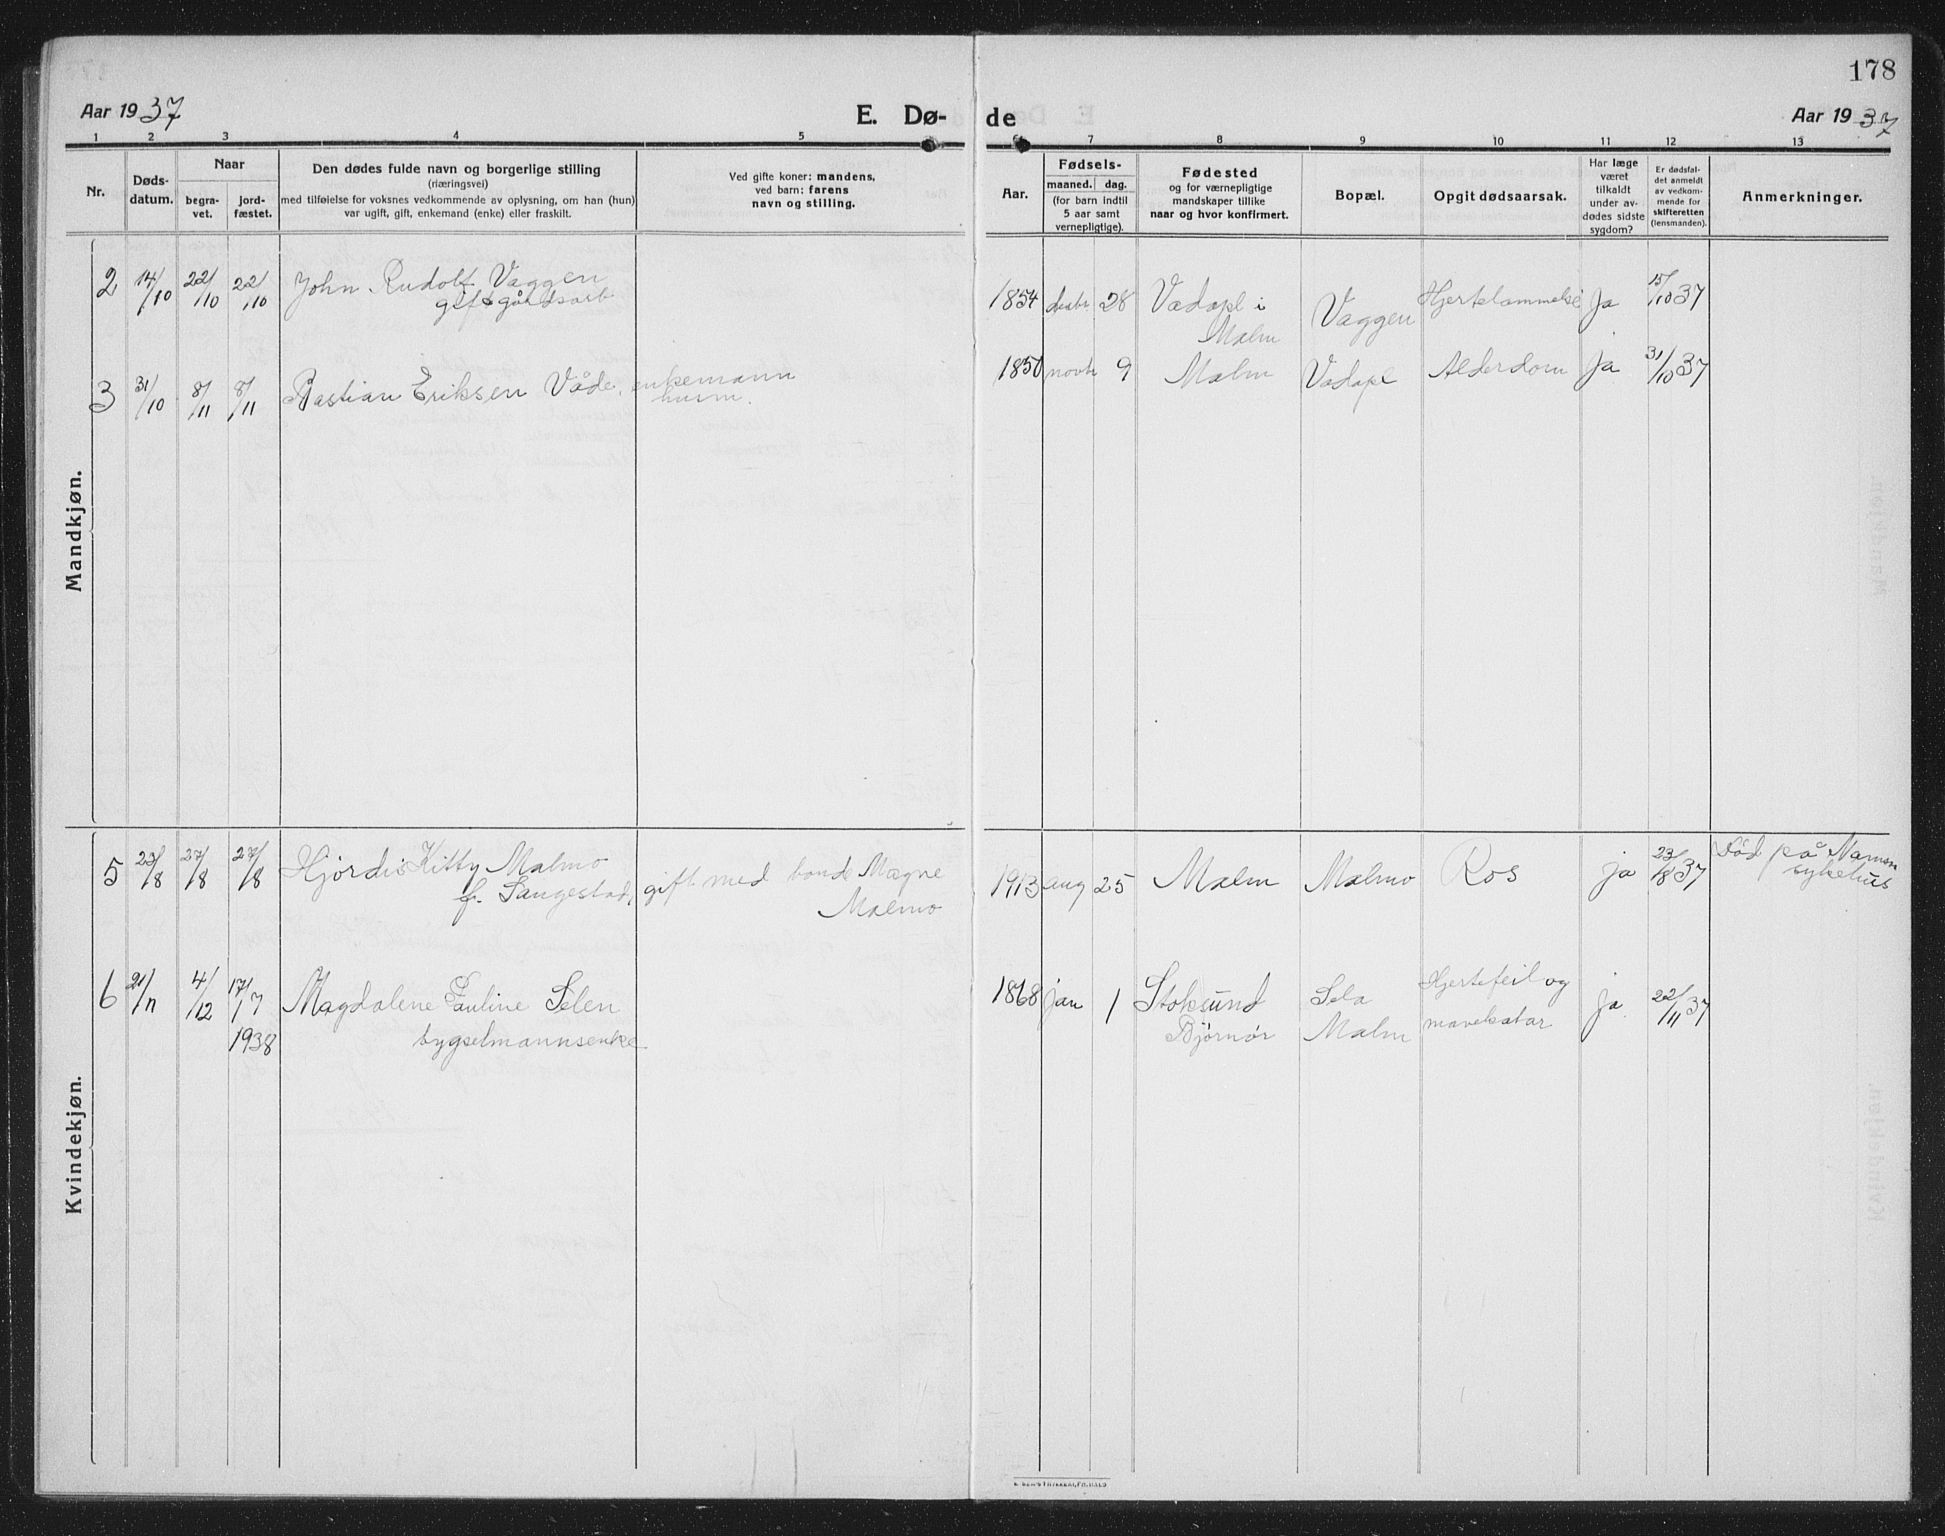 178
Aar 1937
E. Dø-
de
Aar 1937
1 2 3 4 5 6 7 8 9 10 11 12 13
Nr.
Døds-
datum.
Naar
begra-
vet.
jord-
fæstet.
Den dødes fulde navn og borgerlige stilling
(næringsvei)
med tilføielse for voksnes vedkommende av oplysning, om han (hun)
var ugift, gift, enkemand (enke) eller fraskilt.
Ved gifte koner: mandens,
ved barn: farens
navn og stilling.
Aar.
Fødsels-
maaned. dag.
(for barn indtil
5 aar samt
vernepligtige).
Fødested
og for værnepligtige
mandskaper tillike
naar og hvor konfirmert.
Bopæl.
Opgit dødsaarsak.
Har læge
været
tilkaldt
under av-
dødes sidste
sygdom?
Er dødsfal-
det anmeldt
av vedkom-
mende for
skifteretten
(lensmanden).
Anmerkninger.
Mandkjøn.
2 14/10 22/10 22/10 John Rudolf Vaggen
gift gårdsarb
1854 28 Vadapl i
Malm
Vaggen Hjertelammelse Ja 15/10 37
3 31/10 8/11 8/11 Bastian Eriksen Våde, enkemann
1850 novb 9 Malm Vadapl Alderdom Ja 31/10 37
Kvindekjøn.
5 23/8 27/8 27/8 Hjördis Kitty Malmo
f. Saugestad,
gift med bonde Magne
Malmo
1913 aug 25 Malm Malmo Ros ja 23/8 37 Død på Namsn
sykehus
6 21/11 4/12 17/7
1938
Magdalene Pauline Selen
bygselmannsenke
1868 jan 1 Stoksund
Bjørnør
Sela
Malm
Hjertefeil og
mavekatar
ja 22/11 37